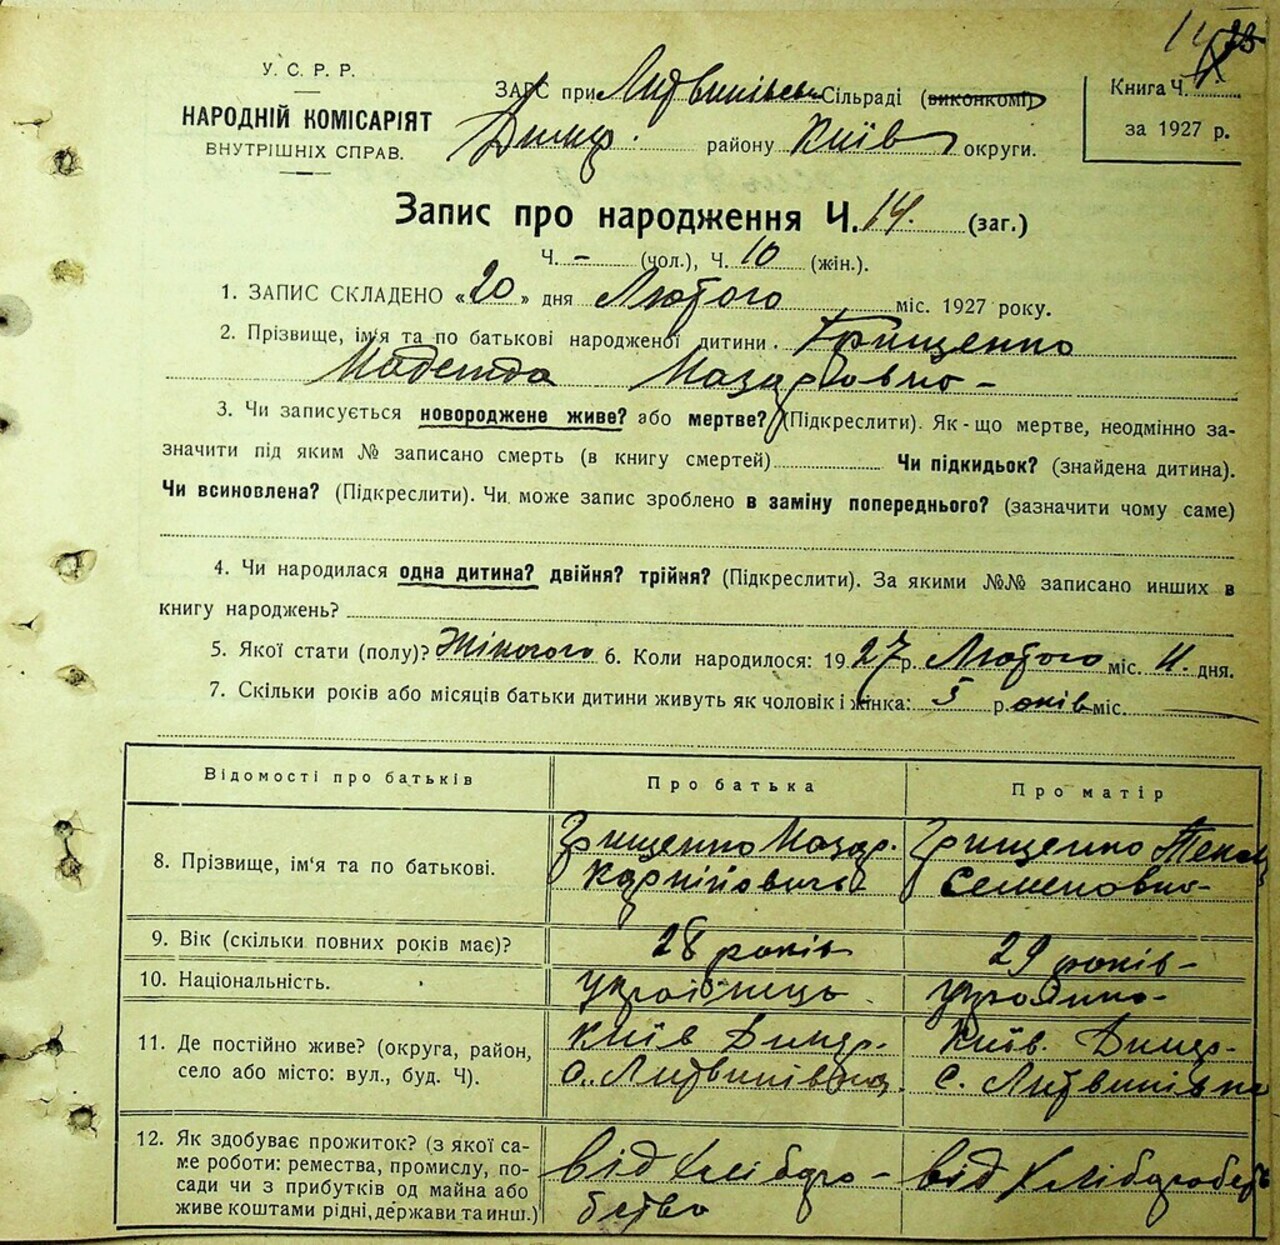 У. С. Р. Р.
НАРОДНІЙ КОМІСАРІЯТ
ВНУТРІШНІХ СПРАВ.
ЗАГС при Литвинівськ Сільраді (виконкомі)
Димер. району Київ округи.
Книга Ч.
за 1927 р.
Запис про народження Ч. 14. (заг.)
Ч. - (чол.), Ч. 10 (жін.).
1. ЗАПИС СКЛАДЕНО «20» дня Лютого міс. 1927 року.
2. Прізвище, ім'я та по батькові народженої дитини. Грищенко
Надежда Назаровно -
3. Чи записується новороджене живе? або мертве? (Підкреслити). Як-що мертве, неодмінно за-
значити під яким № записано смерть (в книгу смертей) Чи підкидьок? (знайдена дитина).
Чи всиновлена? (Підкреслити). Чи може запис зроблено в заміну попереднього? (зазначити чому саме)
4. Чи народилася одна дитина? двійня? трійня? (Підкреслити). За якими №№ записано инших в
книгу народжень?
5. Якої стати (полу)? Жіночого 6. Коли народилося: 1927 р. Лютого міс. 11. дня.
7. Скільки років або місяців батьки дитини живуть як чоловік і жінка: 5 років міс.
Відомості про батьків Про батька Про матір
8. Прізвище, ім'я та по батькові. Грищенко Назар. Карпійович Грищенко Текля Семеновно-
9. Вік (скільки повних років має)? 28 років 29 років-
10. Національність. українець українка-
11. Де постійно живе? (округа, район, Київ Димер. Київ. Димер-
село або місто: вул., буд. Ч). с. Литвинівка. с. Литвинівка
12. Як здобуває прожиток? (з якої са-
ме роботи: ремества, промислу, по- від Хлібороб- від Хліборобств
сади чи з прибутків од майна або
живе коштами рідні, держави та инш.) бство